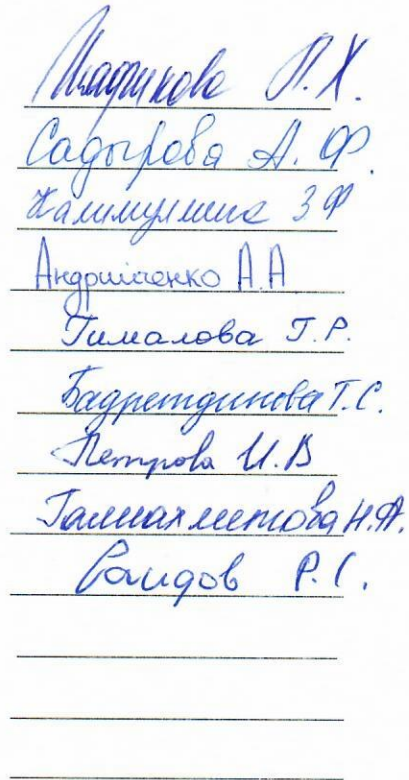 Шафикова Л.Х.
Садырова А.Ф.
Калимуллина З Ф
Андрийченко А.А
Гималова Г.Р.
Бадретдинова Т.С.
Петрова И.В
Галиахметова Н.А.
Саидов Р.С.